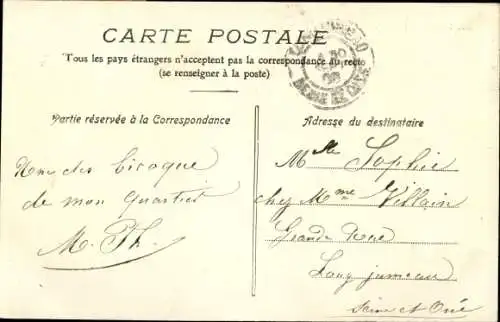 CARTE POSTALE
Tous les pays étrangers n'acceptent pas la correspondance au recto
(se renseigner à la poste)
Partie réservée à la Correspondance
de mon quartier
M. Th.
Adresse du destinataire
Mlle Sophie
chez Mme Villain
Grande Rue
Longjumeau
Seine et Oise